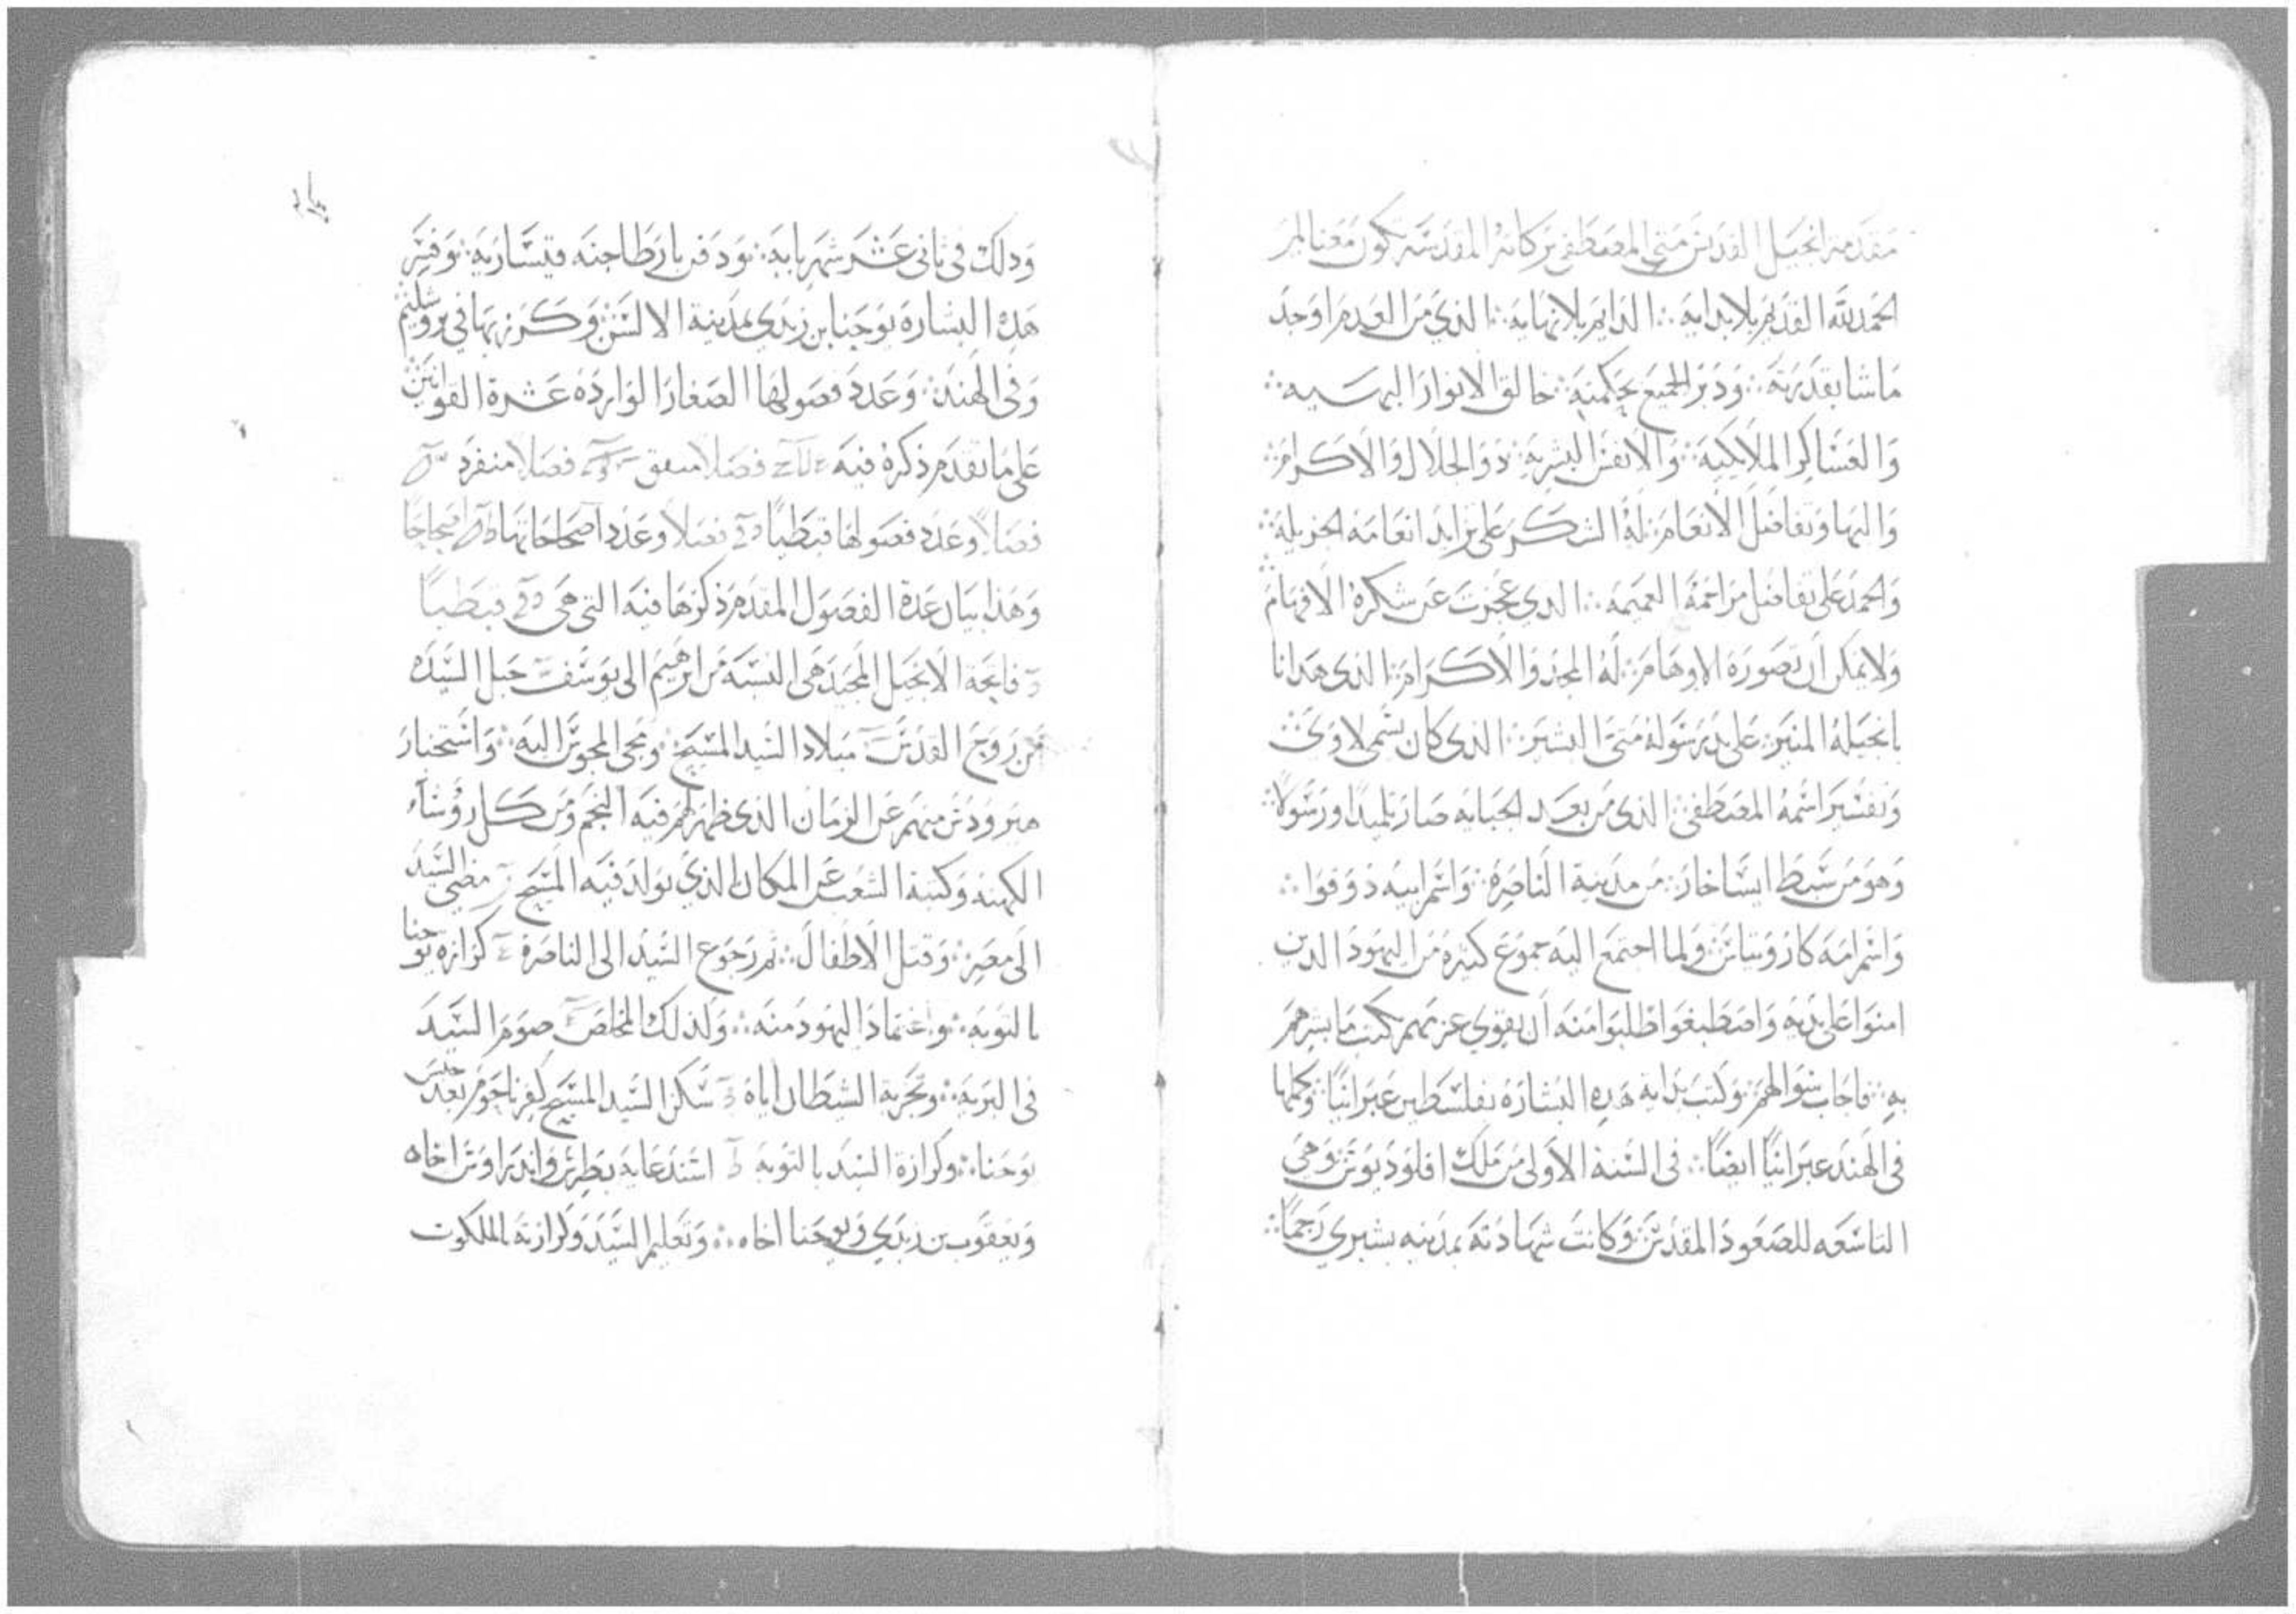 مقدمة انجيل القديس متي المصطفى بركاته المقدسه تكون معنا امين
الحمد لله القديم بلا بدايه ∴ الدايم بلا نهايه ∴ الذي من العدم اوجد
ما شا بقدرته ∴ ودبر الجميع بحكمته ∴ خالق الانوار البهيه ∴
والعساكر الملايكيه ∴ والانفس البشريه ∴ ذو الجلال والاكرام ∴
والبها وتفاضل الانعام ∴ له الشكر على تزايد انعامه الجزيله ∴
والحمد على تفاضل مراحمه العميمه ∴ الدي عجزت عن شكره الافهام
ولا يمكن ان تصوره الاوهام ∴ له المجد والاكرام ∴ الذي هدانا
بانجيله المنير ∴ على يد رسوله متى البشير ∴ الذي كان يسمى لاوي ∴
وتفسير اسمه المصطفى ∴ الذي من بعد الجبايه صار تلميدا ورسولا ∴
وهو من سبط ايساخار ∴ من مدينة الناصره ∴ واسم ابيه دوقوا ∴
واسم امه كاروتياس ∴ ولما اجتمع اليه جموع كثيره من اليهود الدين
امنوا على يديه واصطبغوا طلبوا منه ان يقوي عزمهم بكتب ما بشرهم
به ∴ فاجاب سوالهم ∴ وكتب بداية هده البشاره بفلسطين عبرانيا ∴ وكملها
في الهند عبرانيا ايضا ∴ في السنة الاولى من ملك اقلوديوس ∴ وهي
التاسعه للصعود المقدس ∴ وكانت شهادته بمدينه بشبري رجما ∴
ودلك في ثاني عشر شهر بابه ∴ ودفن بارطاجنه قيساريه ∴ وفسر
هده البشاره يوحنا بن زبدي بمدينة الالسن ∴ وكرز بها في يروشليم
وفي الهند ∴ وعدد فصولها الصغار الوارده عشرة القوانين
على ما تقدم ذكره فيه فصلا متفق فصلا منفرد
فصلا وعدد فصولها قبطيا فصلا وعدد اصحاحاتها اصحاحا
وهذا بيان عدة الفصول المقدم ذكرها فيه التي هي قبطيا
فاتحة الانجيل المجيد هي النسبه من ابرهيم الى يوسف حبل السيده
من روح القدس ميلاد السيد المسيح ∴ ومجي المجوس اليه ∴ واستخبار
هيرودس منهم عن الزمان الذي ظهر لهم فيه النجم ومن كل رؤساء
الكهنه وكتبة الشعب عن المكان الذي يولد فيه المسيح مضي السيد
الى مصر ∴ وقتل الاطفال ∴ ثم رجوع السيد الى الناصرة كرازه يوحنا
بالتوبه ∴ واعتماد اليهود منه ∴ ولذلك المخلص صوم السيد
في البريه ∴ وتجربة الشيطان اياه سكن السيد المسيح كفرناحوم بعد حبس
يوحنا ∴ وكرازة السيد بالتوبه استدعايه بطرس واندراوس اخاه
ويعقوب بن زبدي ويوحنا اخاه ∴ وتعليم السيد وكرازته بالملكوت